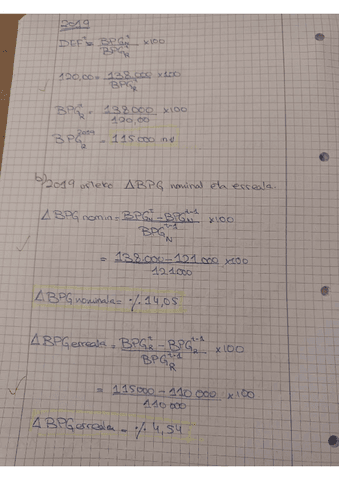 2019
DEF^t = BPG^t_N / BPG^t_R x100
120,00 = 138.000 / BPG^t_R x100
BPG^t_R = 138000 / 120,00 x100
BPG^2019_R = 115000 m€
b) 2019 urteko ΔBPG nominal eta erreala.
ΔBPG nomin = BPG^t_N - BPG^t-1_N / BPG^t-1_N x100
= 138.000 - 121.000 / 121.000 x100
ΔBPG nominala = %14,05
ΔBPG erreala = BPG^t_R - BPG^t-1_R / BPG^t-1_R x100
= 115000 - 110000 / 110000 x100
ΔBPG erreala = % 4,54